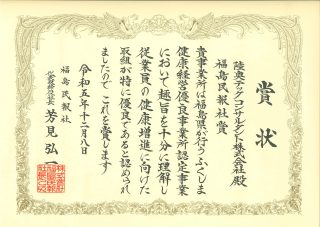 賞状
福島民報社賞
陸奥テックコンサルタント株式会社殿
貴事業所は福島県が行うふくしま
健康経営優良事業所認定事業
において趣旨を十分に理解し
従業員の健康増進に向けた
取組が特に優良であると認められ
ましたのでこれを賞します
令和五年十二月八日
福島民報社
代表取締役社長 芳見弘一